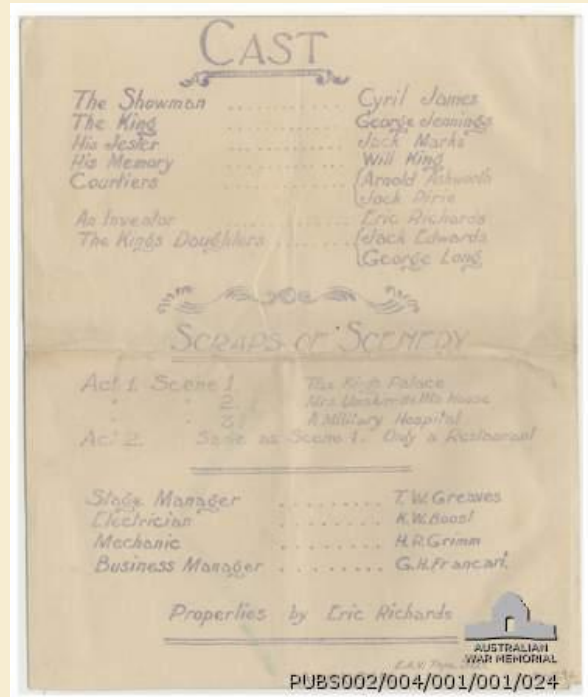 CAST
The Showman ............ Cyril James
The King ............ George Jennings
His Jester ............ Jack Marks
His Memory ............ Will King
Courtiers ............ Arnold Ashworth
Jack Pirie
An Inventor ............ Eric Richards
The Kings Daughters ............ Jack Edwards
George Long
SCRAPS OF SCENERY
Act 1 Scene 1 The Kings Palace
" " 2 Mrs House
" " 3 A Military Hospital
Act 2. Same as Scene 1. Only a Restaurant
Stage Manager ......... T.W. Greaves
Electrician ......... K.W. Boost
Mechanic ......... H.R. Grimm
Business Manager ......... G.H. Francart.
Properties by Eric Richards
AUSTRALIAN
WAR MEMORIAL
PUBS002/004/001/001/024